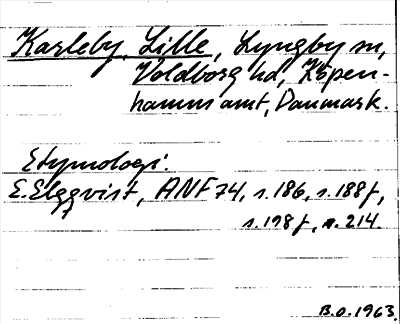 Karleby, Lille, Lyngby sn,
Voldborg hd, Köpen-
hamns amt, Danmark.
Etymologi:
E. Elgqvist, ANF 74, s. 186, s. 188f,
s. 198f, s. 214.
B.O. 1963.